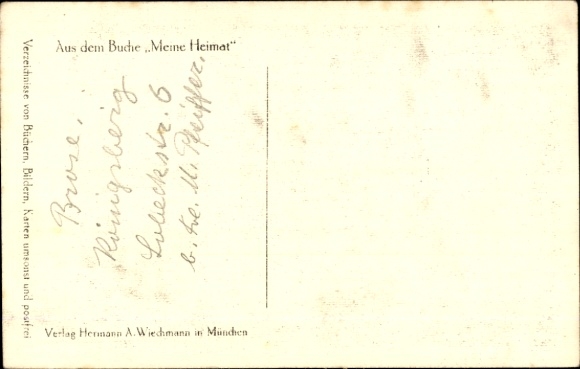 Aus dem Buche „Meine Heimat“
Brose,
Königsberg
Lobeckstr. 6
b. Frl. M. Pfeiffer.
Verlag Hermann A. Wiechmann in München
Verzeichnisse von Büchern, Bildern, Karten umsonst und postfrei